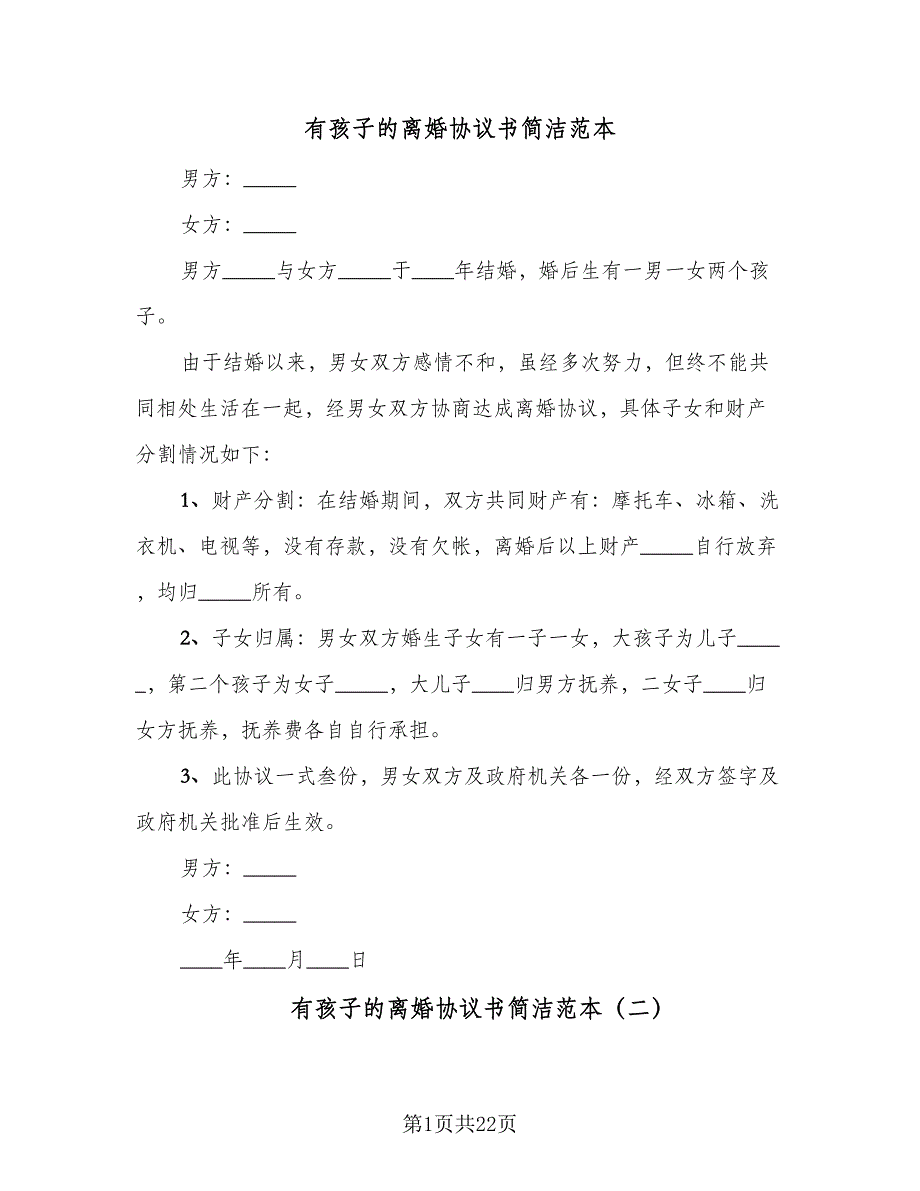 有孩子的离婚协议书简洁范本
男方：_____
女方：_____
男方_____与女方_____于____年结婚，婚后生有一男一女两个孩
子。
由于结婚以来，男女双方感情不和，虽经多次努力，但终不能共
同相处生活在一起，经男女双方协商达成离婚协议，具体子女和财产
分割情况如下：
1、财产分割：在结婚期间，双方共同财产有：摩托车、冰箱、洗
衣机、电视等，没有存款，没有欠帐，离婚后以上财产_____自行放弃
，均归_____所有。
2、子女归属：男女双方婚生子女有一子一女，大孩子为儿子____
_，第二个孩子为女子_____，大儿子____归男方抚养，二女子____归
女方抚养，抚养费各自自行承担。
3、此协议一式叁份，男女双方及政府机关各一份，经双方签字及
政府机关批准后生效。
男方：_____
女方：_____
____年____月____日
有孩子的离婚协议书简洁范本（二）
第1页共22页